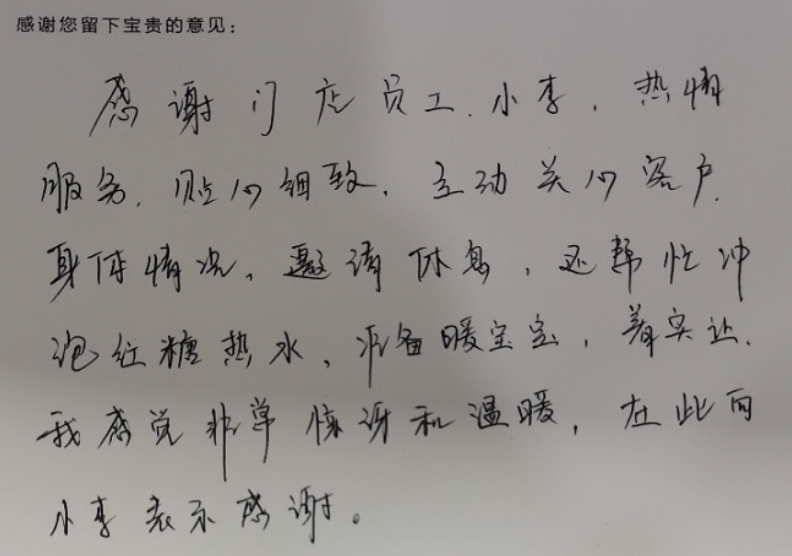 感谢您留下宝贵的意见：
感谢门店员工.小李，热情
服务.贴心细致，主动关心客户
身体情况，邀请休息，还帮忙冲
泡红糖热水，准备暖宝宝，着实让
我感觉非常惊讶和温暖，在此向
小李表示感谢。